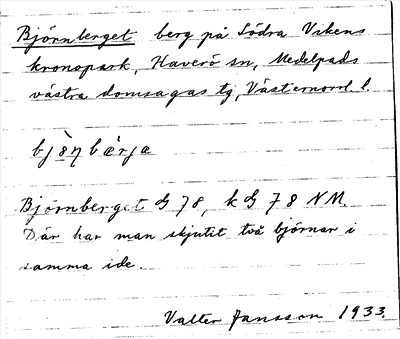 Björnberget berg på Södra Vikens
kronopark, Haverö sn, Medelpads
västra domsagas tg, Västernorrl. l.
Björnberget G 78, k G 78 NM.
Där har man skjutit två björnar i
samma ide.
Valter Jansson 1933.